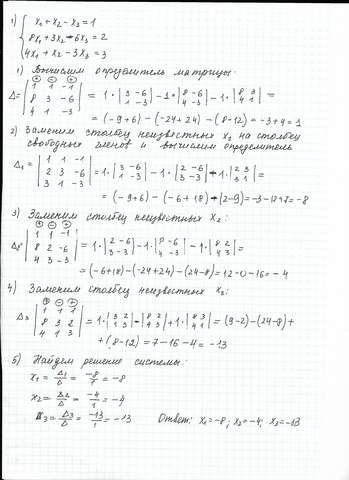 1) { x₁+x₂-x₃=1
8x₁+3x₂-6x₃=2
4x₁+x₂-3x₃=3
1) Вычислим определитель матрицы:
⊕ ⊖ ⊕
Δ= | 1 1 -1 | = 1·| 3 -6 | -1·| 8 -6 | -1·| 8 3 | =
| 8 3 -6 | | 1 -3 | | 4 -3 | | 4 1 |
| 4 1 -3 | = (-9+6)-(-24+24)-(8-12)=-3+4=1
2) Заменим столбец неизвестных x₁ на столбец
свободных членов и вычислим определитель
Δ₁= | 1 1 -1 | =1·| 3 -6 | -1·| 2 -6 | -1·| 2 3 | =
| 2 3 -6 | | 1 -3 | | 3 -3 | | 3 1 |
| 3 1 -3 | = (-9+6)-(-6+18)-(2-9)=-3-12+7=-8
3) Заменим столбец неизвестных x₂:
⊕ ⊖ ⊕
Δ₂= | 1 1 -1 | =1·| 2 -6 | -1·| 8 -6 | -1·| 8 2 | =
| 8 2 -6 | | 3 -3 | | 4 -3 | | 4 3 |
| 4 3 -3 | =(-6+18)-(-24+24)-(24-8)=12-0-16=-4
4) Заменим столбец неизвестных x₃:
⊕ ⊖ ⊕
Δ₃ = | 1 1 1 | =1·| 3 2 | -| 8 2 | +1·| 8 3 | =(9-2)-(24-8)+
| 8 3 2 | | 1 3 | | 4 3 | | 4 1 |
| 4 1 3 | +(8-12)=7-16-4=-13
5) Найдем решение системы:
x₁=Δ₁/Δ=-8/1=-8
x₂=Δ₂/Δ=-4/1=-4
x₃=Δ₃/Δ=-13/1=-13 Ответ: x₁=-8; x₂=-4; x₃=-13